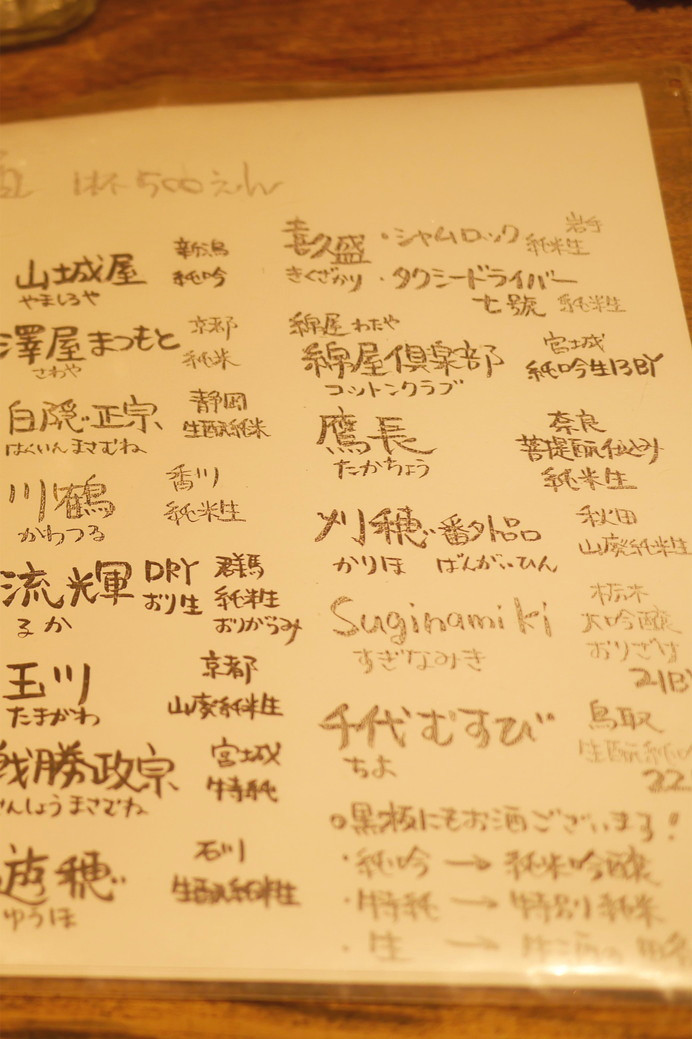 1杯500えん
山城屋 新潟 純吟
やましろや
澤屋まつもと 京都 純米
さわや
白隠正宗 静岡 生酛純米
はくいんまさむね
川鶴 香川 純米生
かわつる
流輝 DRY おり生 群馬 純米生 おりがらみ
るか
玉川 京都 山廃純米生
たまがわ
戦勝政宗 宮城 特純
んしょうまさむね
遊穂 石川 生酛純米生
ゆうほ
喜久盛 ・シャムロック 純米生 岩手
きくざかり ・タクシードライバー
七號 純米生
綿屋 わたや
綿屋倶楽部 宮城 純吟生13BY
コットンクラブ
鷹長 奈良 菩提酛仕込み 純米生
たかちょう
刈穂 番外品 秋田 山廃純米生
かりほ ばんがいひん
Suginamiki 栃木 大吟醸 おりざけ 21BY
すぎなみき
千代むすび 鳥取 生酛純
ちよ 22
○黒板にもお酒ございます!
・純吟→純米吟醸
・特純→特別純米
・生→生酒の